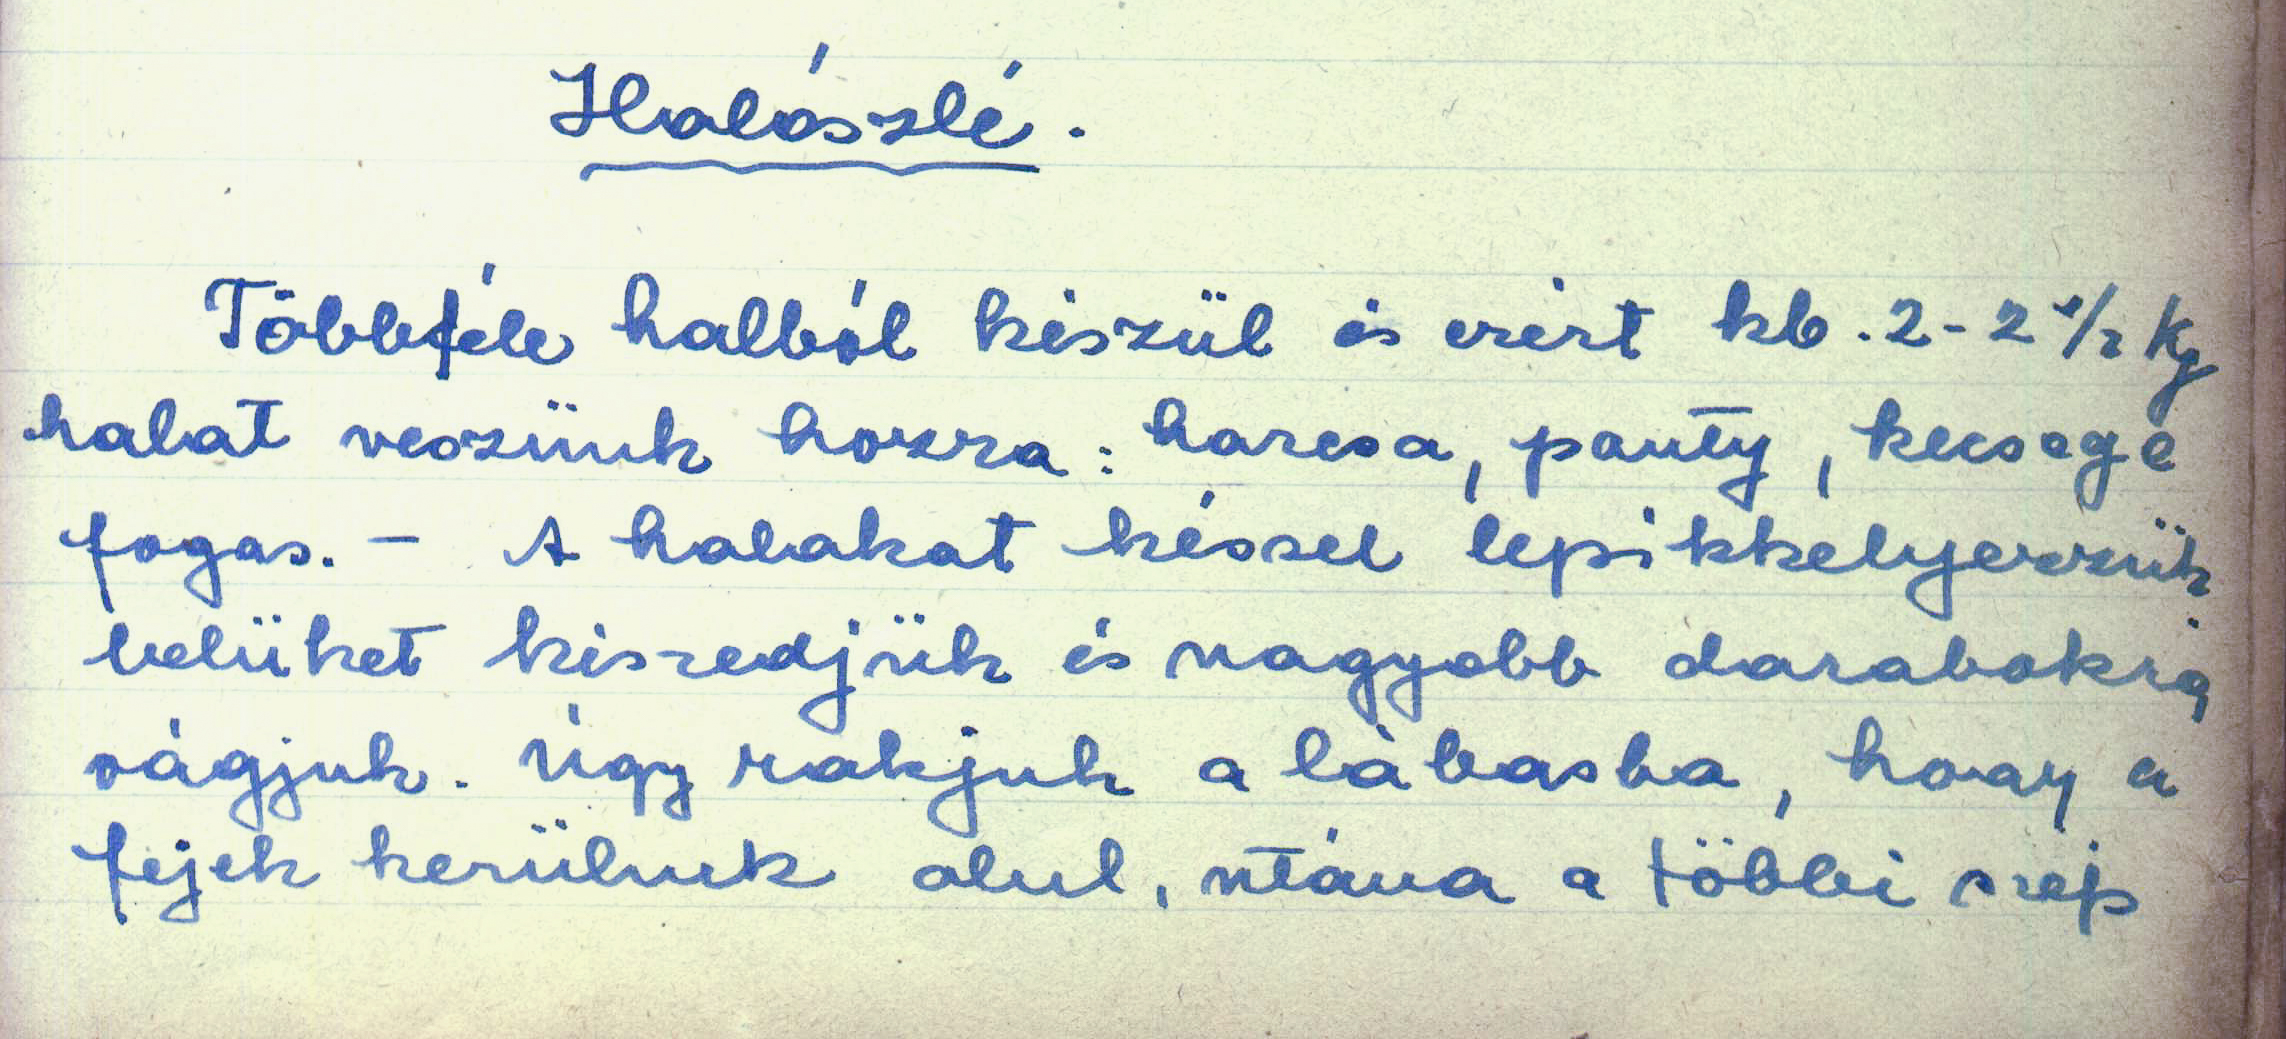 Halászlé.
Többféle halból készül és ezért kb. 2-2 1/2 Kg
halat veszünk hozzá: harcsa, ponty, kecsege
fogas. - A halakat késsel lepikkelyezzük
belüket kiszedjük és nagyobb darabokra
vágjuk. Úgy rakjuk a lábasba, hogy a
fejek kerülnek alul, utána a többi szép